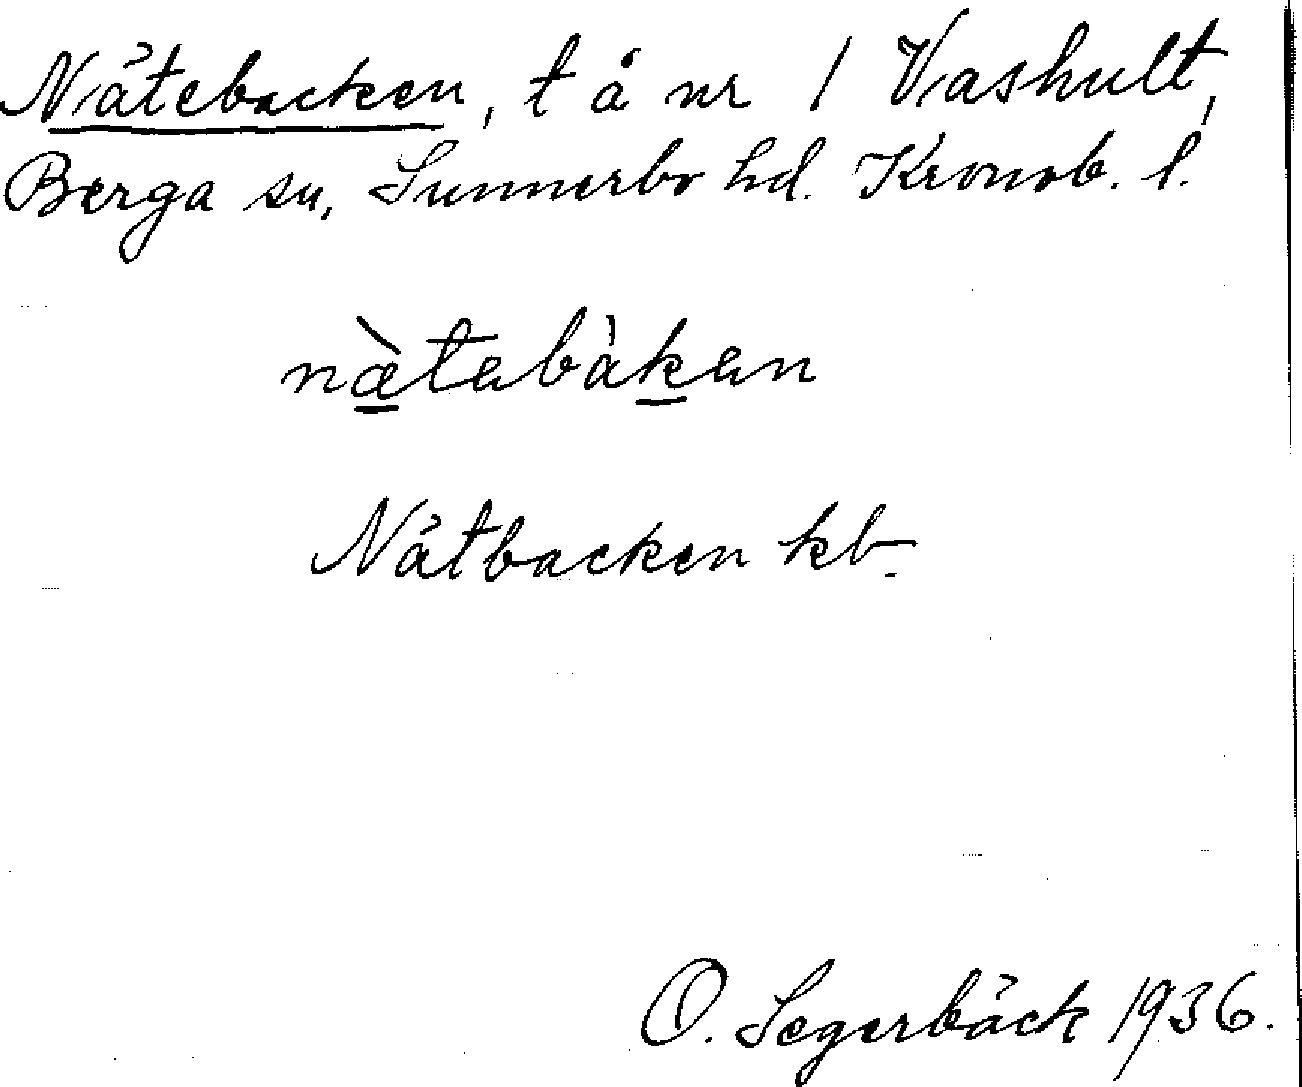 Nätebacken, t å nr 1 Vashult,
Berga sn, Sunnerbo hd. Kronob. l.
næ̀tabàkan
Nätbacken kb.
O. Segerbäck 1936.